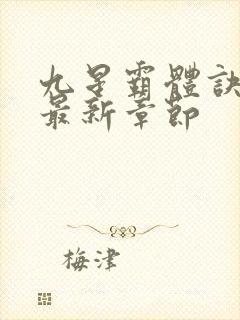 九星霸體訣
最新章節
梅津